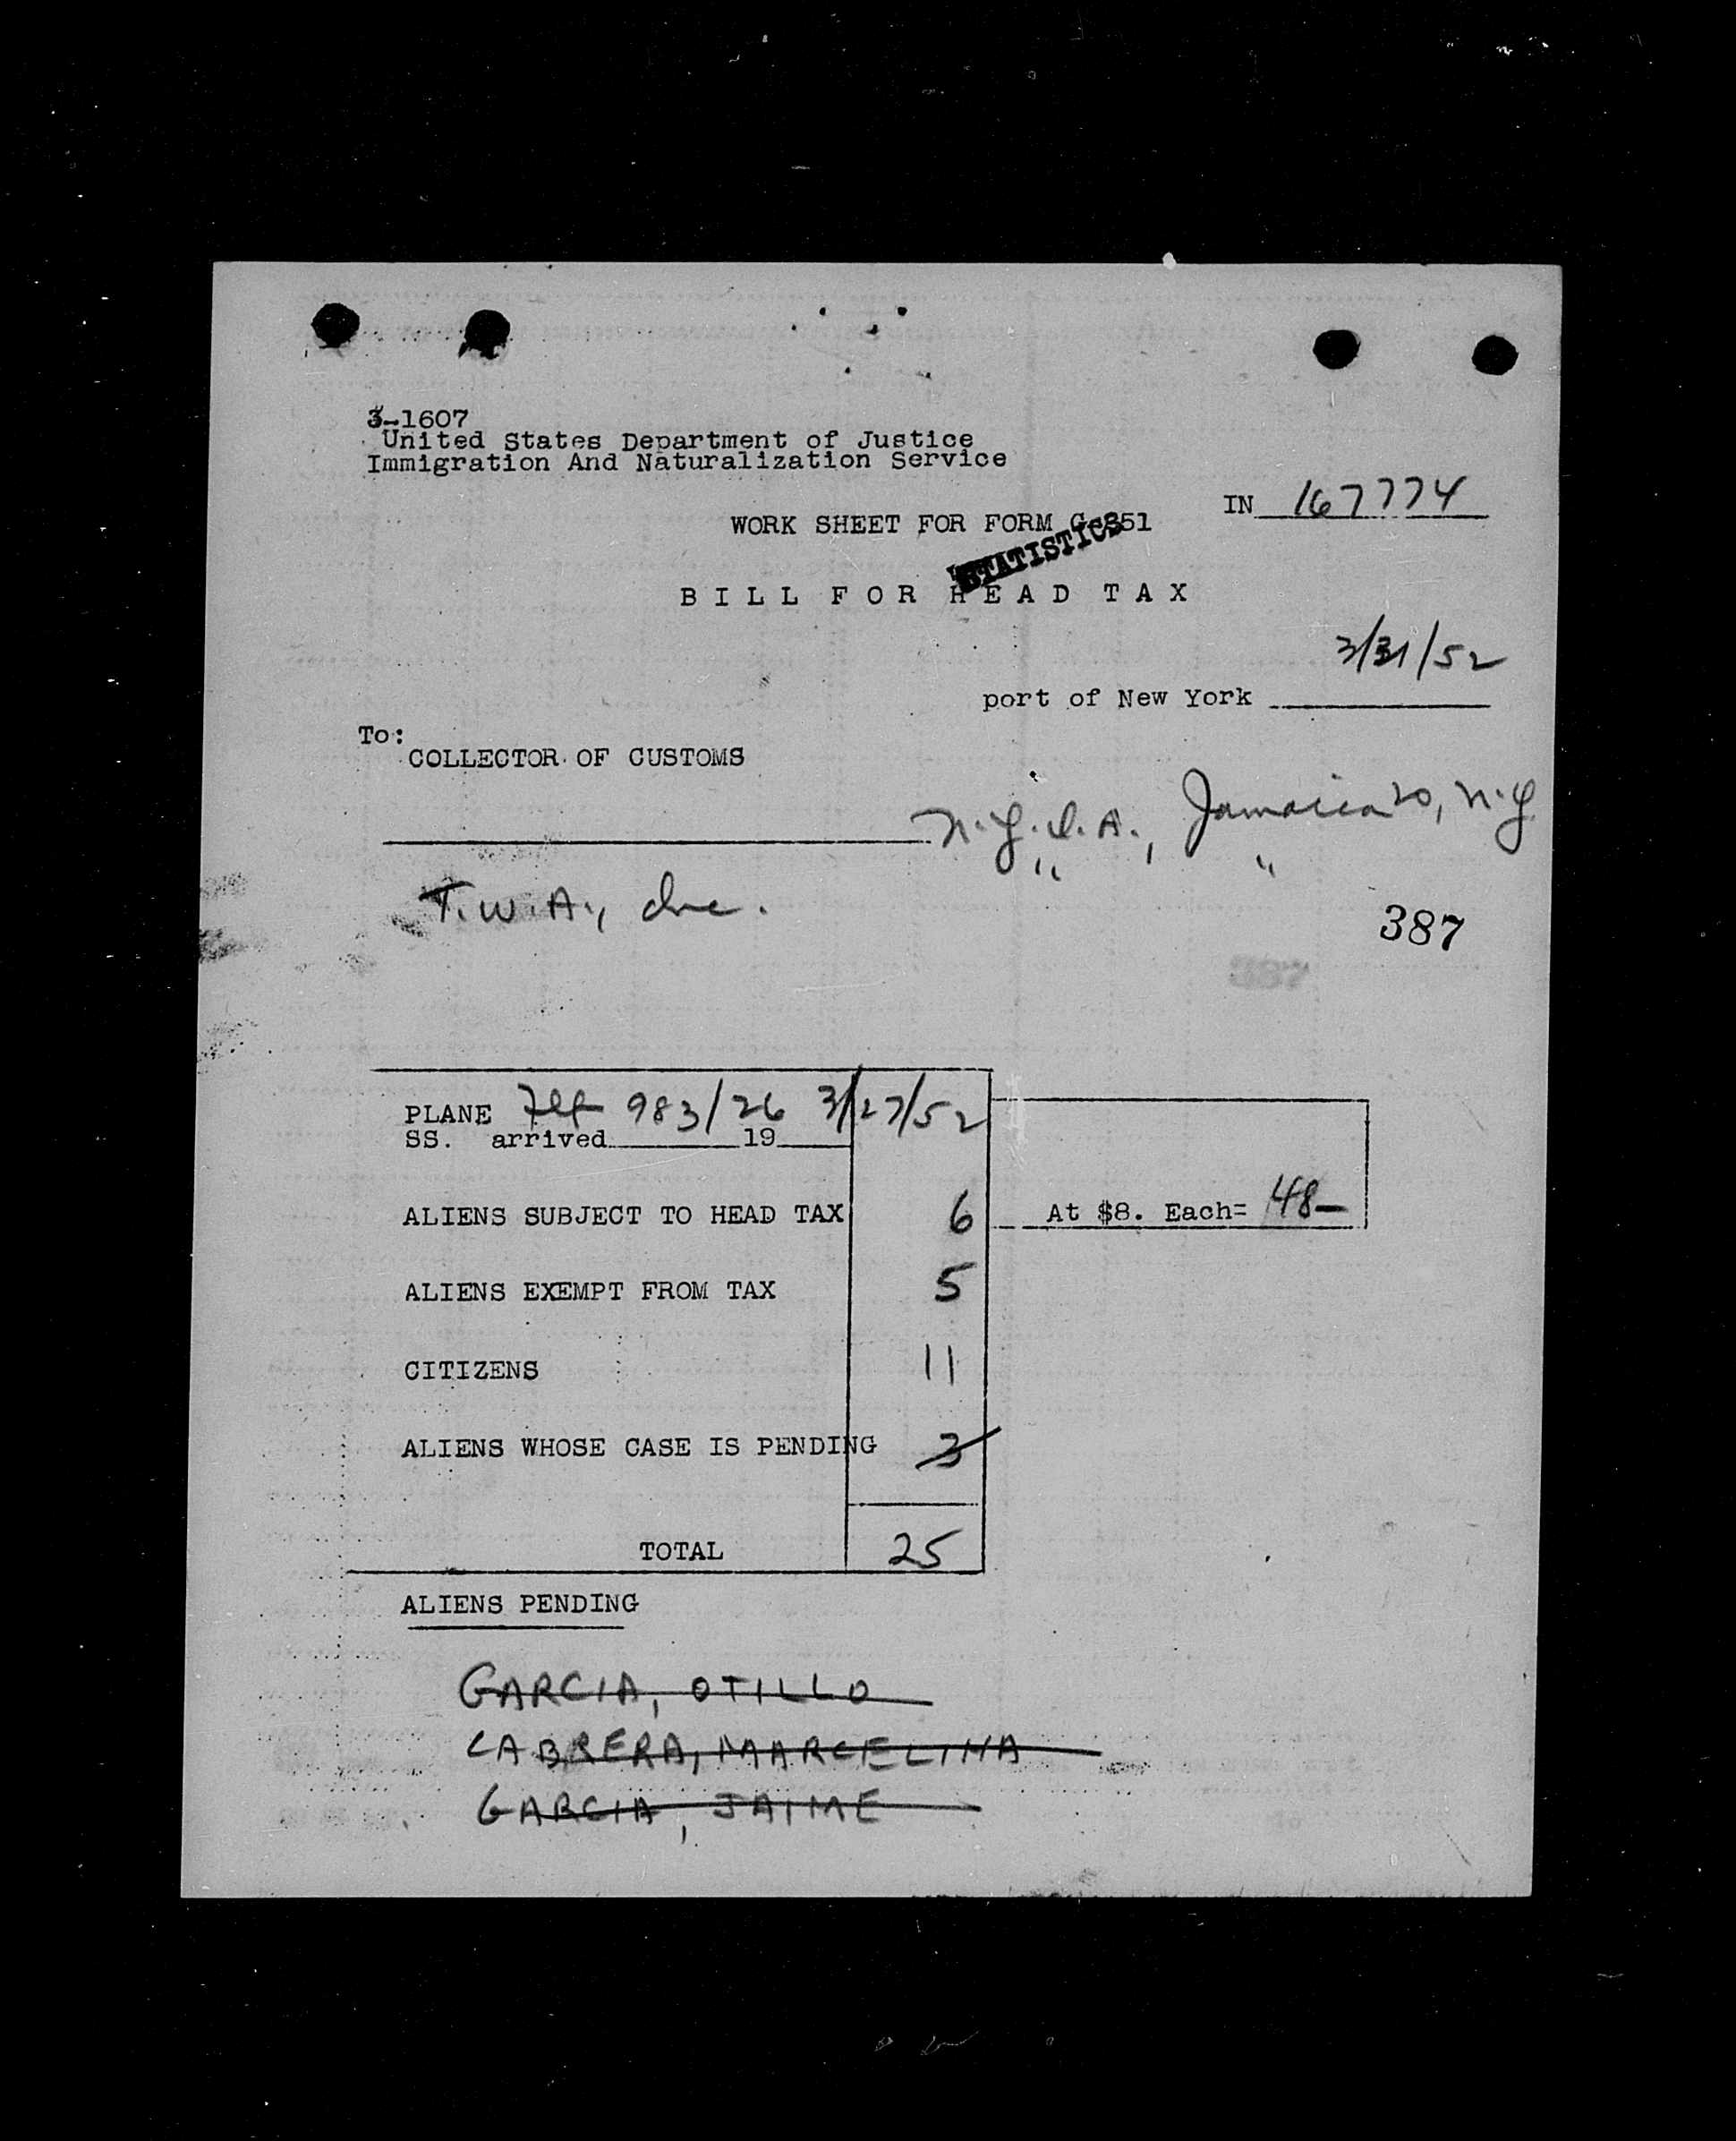 3-1607
United States Department of Justice
Immigration And Naturalization Service
IN 167774
WORK SHEET FOR FORM G-351
STATISTICS
BILL FOR HEAD TAX
3/31/52
port of New York
To:
COLLECTOR OF CUSTOMS
N.Y.I.A., Jamaica 20, N.Y.
T.W.A., Inc.
" "
387
387
PLANE Flt 983/26 3/27/52
SS. arrived 19
ALIENS SUBJECT TO HEAD TAX 6 At $8. Each= 48-
ALIENS EXEMPT FROM TAX 5
CITIZENS 11
ALIENS WHOSE CASE IS PENDING 3
TOTAL 25
ALIENS PENDING
GARCIA, OTILLO
CABRERA, MARCELINA
GARCIA, JAIME